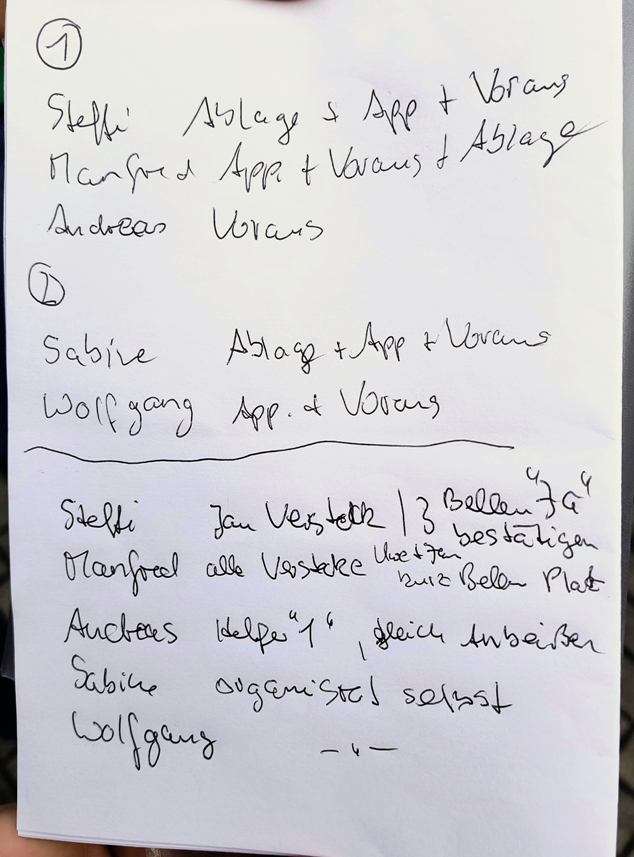 1
Steffi Ablage + App + Voraus
Manfred App. + Voraus + Ablage
Andreas Voraus
2
Sabine Ablage + App + Voraus
Wolfgang App. + Voraus
Steffi Jan Versteck / 3 Bellen "Ja" bestätigen
Manfred alle Verstecke Uwe + Jan kurz Bellen Platz
Andreas Helfer "1", gleich Anbeißen
Sabine organisiert selbst
Wolfgang — " —